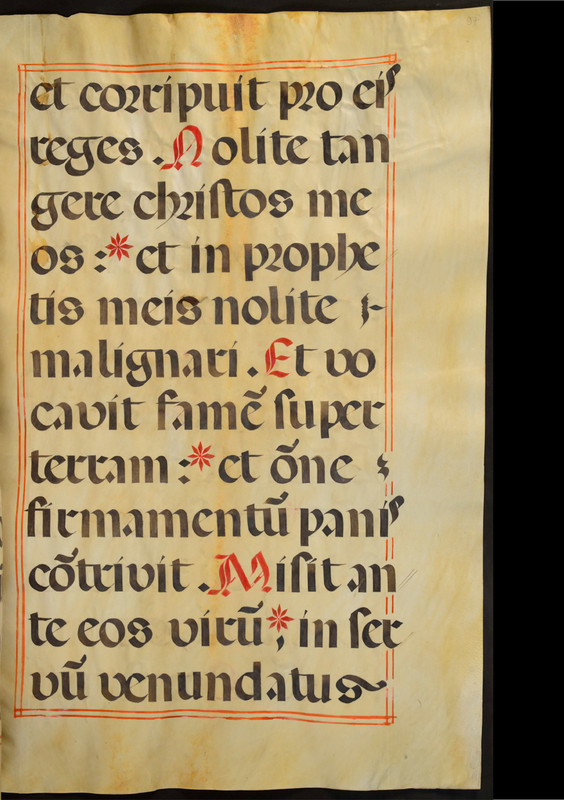 et corripuit pro eis
reges. Nolite tan
gere christos me
os :* et in prophe
tis meis nolite
malignari. Et vo
cavit famē super
terram :* et õne
firmamentū panis
cõtrivit. Misit an
te eos virū;* in ser
vū venundatus